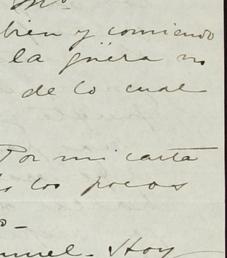 bien y comiendo
la güera no
de lo cual
Por mi carta
los pocos
Hoy